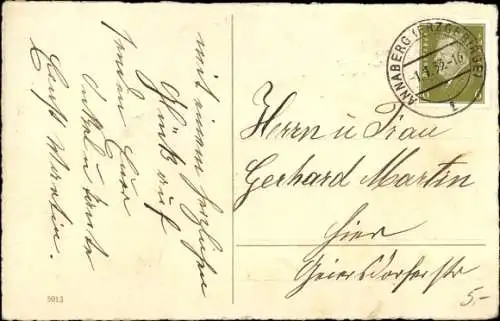 mit einem herzlichen
Glück auf
senden Euer
Onkel u. Tante
Ernst Martin.
5013
ANNABERG (ERZGEBIRGE)
-1.1.32.-10
Herrn u Frau
Gerhard Martin
hier
Geiersdorferstr
5.-